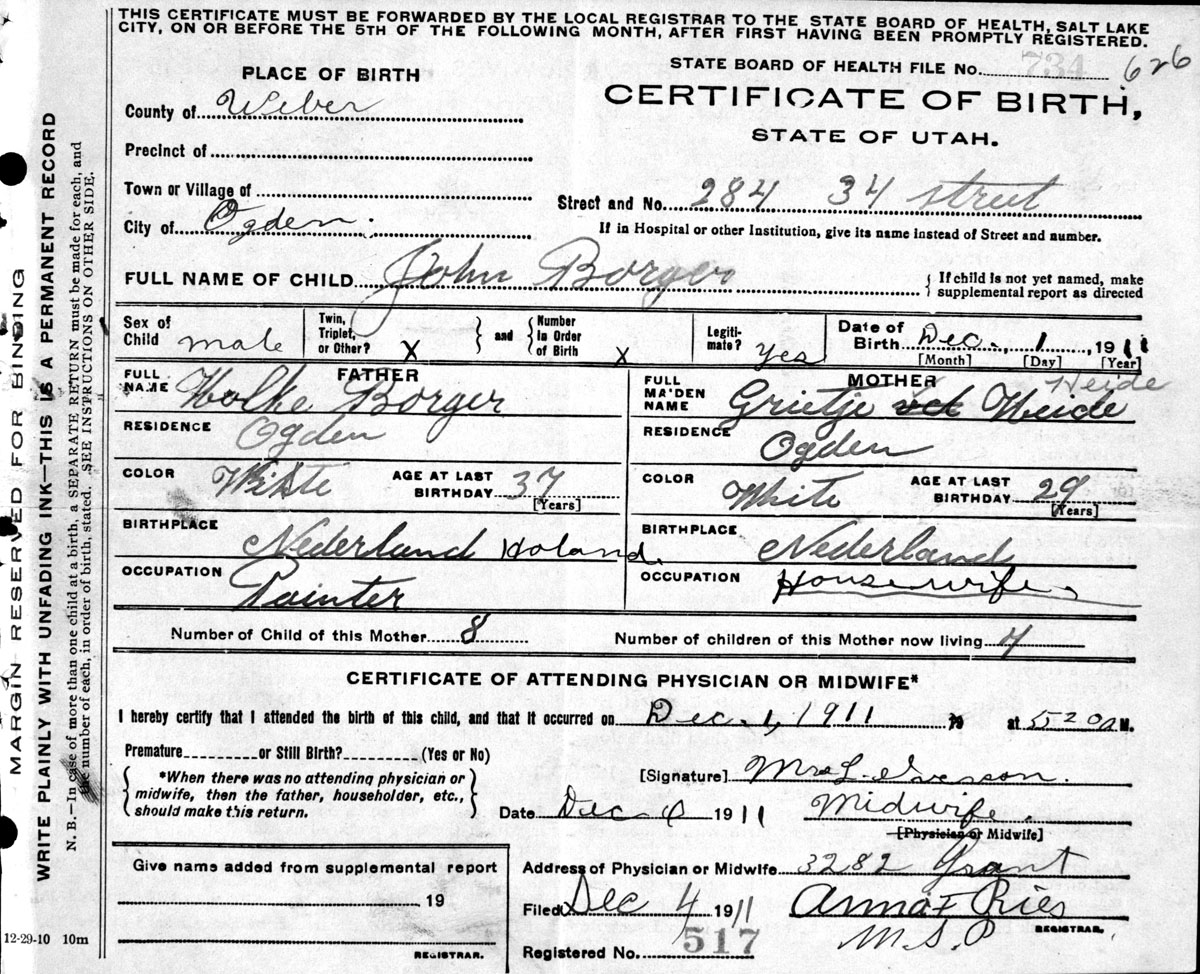 THIS CERTIFICATE MUST BE FORWARDED BY THE LOCAL REGISTRAR TO THE STATE BOARD OF HEALTH, SALT LAKE
CITY, ON OR BEFORE THE 5TH OF THE FOLLOWING MONTH, AFTER FIRST HAVING BEEN PROMPTLY REGISTERED.
STATE BOARD OF HEALTH FILE No. 734 626
PLACE OF BIRTH
CERTIFICATE OF BIRTH,
STATE OF UTAH.
County of Weber
Precinct of
Town or Village of
City of Ogden.
Street and No. 284 34 street
If in Hospital or other Institution, give its name instead of Street and number.
FULL NAME OF CHILD John Borger
{ If child is not yet named, make
supplemental report as directed
Sex of Child male
Twin, Triplet, or Other? X } and { Number In Order of Birth X
Legiti-mate? Yes
Date of Birth Dec., 1, 1911
[Month] [Day] [Year]
FATHER
FULL NAME Wolke Borger
RESIDENCE Ogden
COLOR White AGE AT LAST BIRTHDAY 37
[Years]
BIRTHPLACE Nederland Holand.
OCCUPATION Painter
MOTHER Heide
FULL MA'DEN NAME Grietje Heide
RESIDENCE Ogden
COLOR White AGE AT LAST BIRTHDAY 29
[Years]
BIRTHPLACE Nederland
OCCUPATION Housewife
Number of Child of this Mother 8
Number of children of this Mother now living
CERTIFICATE OF ATTENDING PHYSICIAN OR MIDWIFE*
I hereby certify that I attended the birth of this child, and that it occurred on Dec. 1, 1911 at 5 20 a M.
Premature or Still Birth? (Yes or No)
{ *When there was no attending physician or
midwife, then the father, householder, etc.,
should make this return. }
[Signature] Mrs L.
Date Dec 4 1911
Midwife.
[Physician or Midwife]
Give name added from supplemental report
19
REGISTRAR.
Address of Physician or Midwife 3282 Grant
Filed Dec 4 1911 Anna F Ries
M.S.P REGISTRAR.
Registered No. 517
MARGIN RESERVED FOR BINDING
WRITE PLAINLY WITH UNFADING INK—THIS IS A PERMANENT RECORD
N. B.—In case of more than one child at a birth, a SEPARATE RETURN must be made for each, and
the number of each, in order of birth, stated. SEE INSTRUCTIONS ON OTHER SIDE.
12-29-10 10m